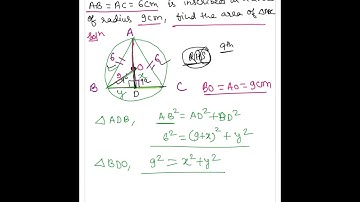 AB = AC = 6cm is inscribed in a circle
of radius 9cm, find the area of △ABC
Solⁿ
A
6
6
9
O
9
x
B
y
D
C
RHS
9th
BO = AO = 9cm
△ ADB, AB² = AD² + BD²
6² = (9+x)² + y²
△ BDO, 9² = x² + y²